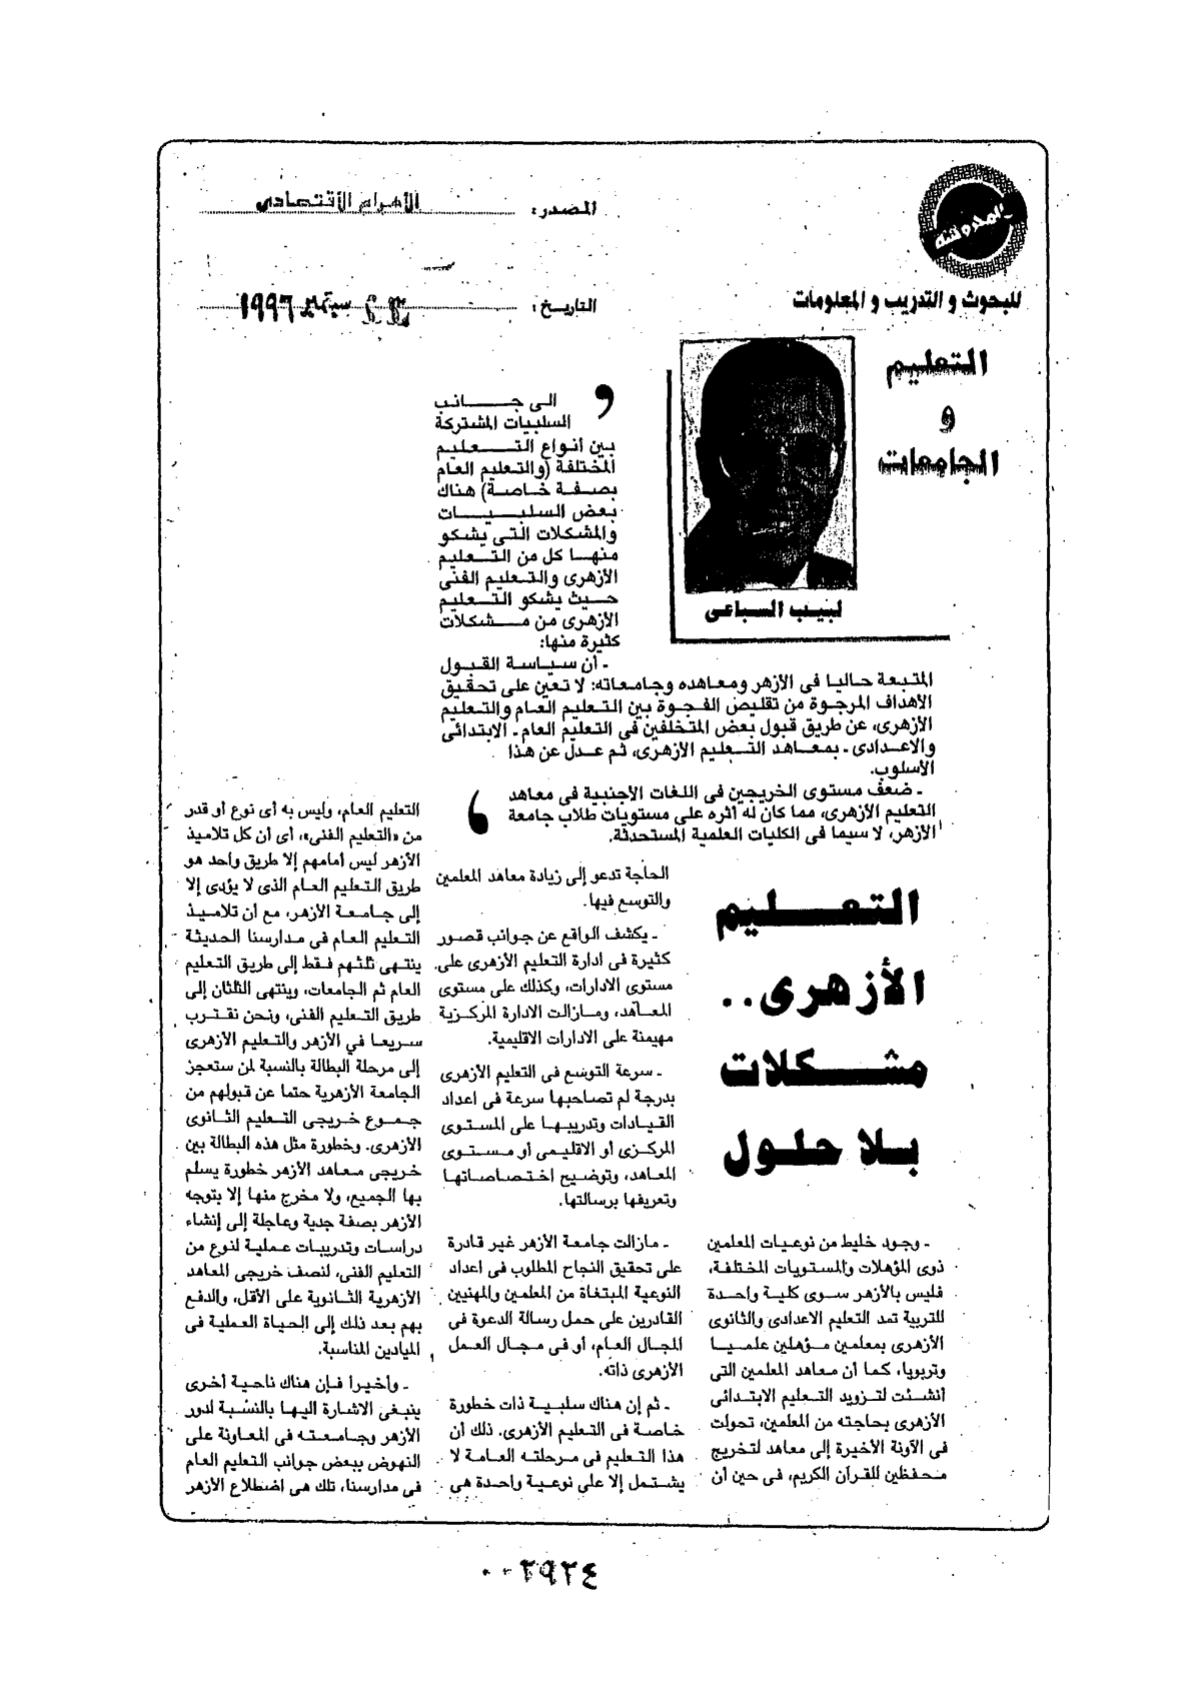 المحروسة
للبحوث و التدريب و المعلومات
المصدر: الأهرام الاقتصادي
التاريخ: سبتمبر ١٩٩٦
التعليم
و
الجامعات
لبيب السباعى
الى جانب
السلبيات المشتركة
بين أنواع التعليم
المختلفة (والتعليم العام
بصفة خاصة) هناك
بعض السلبيات
والمشكلات التى يشكو
منها كل من التعليم
الأزهرى والتعليم الفنى
حيث يشكو التعليم
الأزهرى من مشكلات
كثيرة منها:
ـ أن سياسة القبول
المتبعة حاليا فى الأزهر ومعاهده وجامعاته: لا تعين على تحقيق
الأهداف المرجوة من تقليص الفجوة بين التعليم العام والتعليم
الأزهرى، عن طريق قبول بعض المتخلفين فى التعليم العام ـ الابتدائى
والاعدادى ـ بمعاهد التعليم الأزهرى، ثم عدل عن هذا
الأسلوب.
ـ ضعف مستوى الخريجين فى اللغات الأجنبية فى معاهد
التعليم الأزهرى، مما كان له أثره على مستويات طلاب جامعة
الأزهر، لا سيما فى الكليات العلمية المستحدثة.
التعليم
الأزهرى..
مشكلات
بلا حلول
ـ وجود خليط من نوعيات المعلمين
ذوى المؤهلات والمستويات المختلفة،
فليس بالأزهر سوى كلية واحدة
للتربية تمد التعليم الاعدادى والثانوى
الأزهرى بمعلمين مؤهلين علميا
وتربويا، كما أن معاهد المعلمين التى
أنشئت لتزويد التعليم الابتدائى
الأزهرى بحاجته من المعلمين، تحولت
فى الآونة الأخيرة إلى معاهد لتخريج
محفظين للقرآن الكريم، فى حين أن
الحاجة تدعو إلى زيادة معاهد المعلمين
والتوسع فيها.
ـ يكشف الواقع عن جوانب قصور
كثيرة فى ادارة التعليم الأزهرى على
مستوى الادارات، وكذلك على مستوى
المعاهد، ومازالت الادارة المركزية
مهيمنة على الادارات الاقليمية.
ـ سرعة التوسع فى التعليم الأزهرى
بدرجة لم تصاحبها سرعة فى اعداد
القيادات وتدريبها على المستوى
المركزى أو الاقليمى أو مستوى
المعاهد، وتوضيح اختصاصاتها
وتعريفها برسالتها.
ـ مازالت جامعة الأزهر غير قادرة
على تحقيق النجاح المطلوب فى اعداد
النوعية المبتغاة من المعلمين والمهنيين
القادرين على حمل رسالة الدعوة فى
المجال العام، أو فى مجال العمل
الأزهرى ذاته.
ـ ثم إن هناك سلبية ذات خطورة
خاصة فى التعليم الأزهرى. ذلك أن
هذا التعليم فى مرحلته العامة لا
يشتمل إلا على نوعية واحدة هى
التعليم العام، وليس به أى نوع أو قدر
من «التعليم الفنى»، أى أن كل تلاميذ
الأزهر ليس أمامهم إلا طريق واحد هو
طريق التعليم العام الذى لا يؤدى إلا
إلى جامعة الأزهر، مع أن تلاميذ
التعليم العام فى مدارسنا الحديثة
ينتهى ثلثهم فقط إلى طريق التعليم
العام ثم الجامعات، وينتهى الثلثان إلى
طريق التعليم الفنى، ونحن نقترب
سريعا في الأزهر والتعليم الأزهرى
إلى مرحلة البطالة بالنسبة لمن ستعجز
الجامعة الأزهرية حتما عن قبولهم من
جموع خريجى التعليم الثانوى
الأزهرى. وخطورة مثل هذه البطالة بين
خريجى معاهد الأزهر خطورة يسلم
بها الجميع، ولا مخرج منها إلا بتوجه
الأزهر بصفة جدية وعاجلة إلى إنشاء
دراسات وتدريبات عملية لنوع من
التعليم الفنى، لنصف خريجى المعاهد
الأزهرية الثانوية على الأقل، والدفع
بهم بعد ذلك إلى الحياة العملية فى
الميادين المناسبة.
ـ وأخيرا فإن هناك ناحية أخرى
ينبغى الاشارة اليها بالنسبة لدور
الأزهر وجامعته فى المعاونة على
النهوض ببعض جوانب التعليم العام
فى مدارسنا، تلك هى اضطلاع الأزهر
٠٠٢٩٢٤